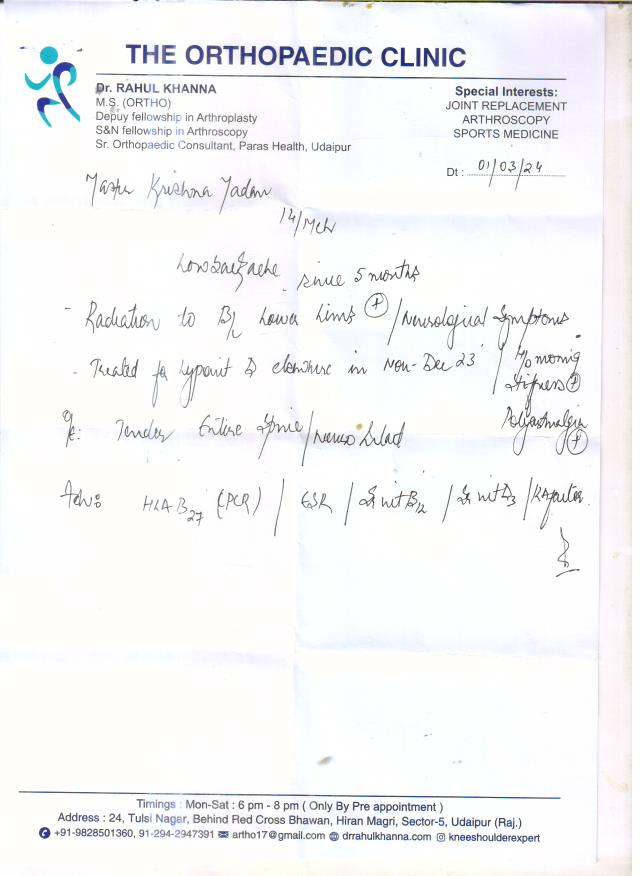 THE ORTHOPAEDIC CLINIC
Dr. RAHUL KHANNA
M.S. (ORTHO)
Depuy fellowship in Arthroplasty
S&N fellowship in Arthroscopy
Sr. Orthopaedic Consultant, Paras Health, Udaipur
Special Interests:
JOINT REPLACEMENT
ARTHROSCOPY
SPORTS MEDICINE
Dt : 01/03/24
Master Krishna Yadav
14/Mch
Low backache since 5 months
- Radiation to B/L Lower Limbs (+) / Neurological Symptoms
- Treated for elsewhere in Nov-Dec 23 / H/o morning
stifness (+)
Polyarthralgia
(+)
Tender Entire Spine /
Adv: HLA B27 (PCR) / ESR / Sr vit B12 / Sr vit D3 / RA factor
Timings : Mon-Sat : 6 pm - 8 pm ( Only By Pre appointment )
Address : 24, Tulsi Nagar, Behind Red Cross Bhawan, Hiran Magri, Sector-5, Udaipur (Raj.)
+91-9828501360, 91-294-2947391 artho17@gmail.com drrahulkhanna.com kneeshoulderexpert